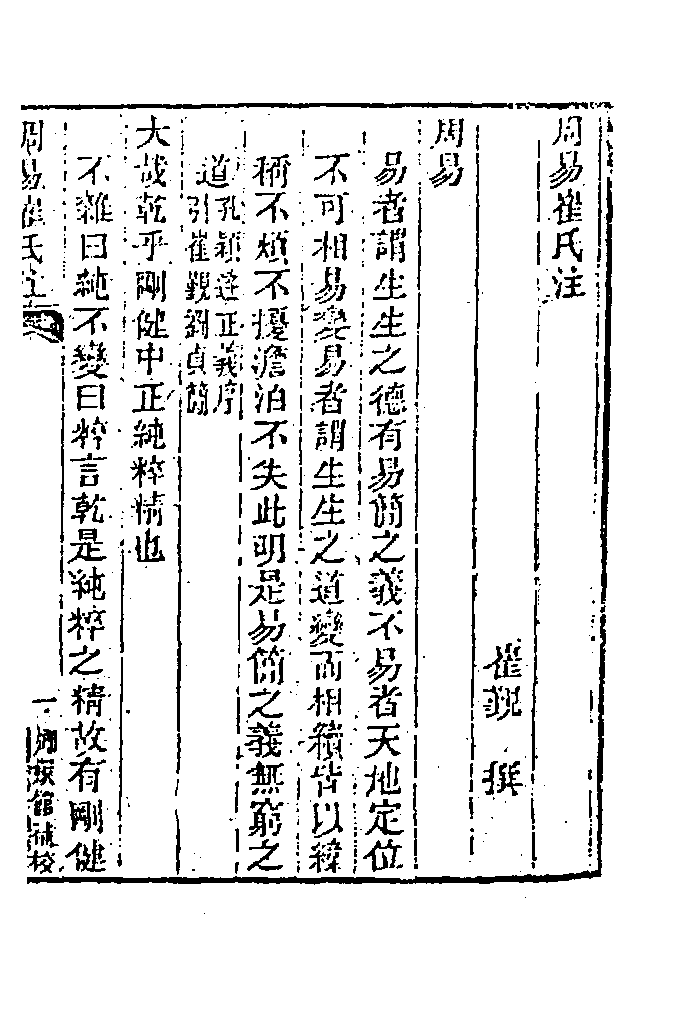 周易崔氏注
崔覲　撰
周易
易者謂生生之德有易簡之義不易者天地定位
不可相易變易者謂生生之道變而相續皆以緯
稱不煩不擾澹泊不失此明是易簡之義無窮之
道孔穎達正義序
引崔覲劉貞簡
大哉乾乎剛健中正純粹精也
不雜曰純不變曰粹言乾是純粹之精故有剛健
周易崔氏注
一
嫏嬛館補校